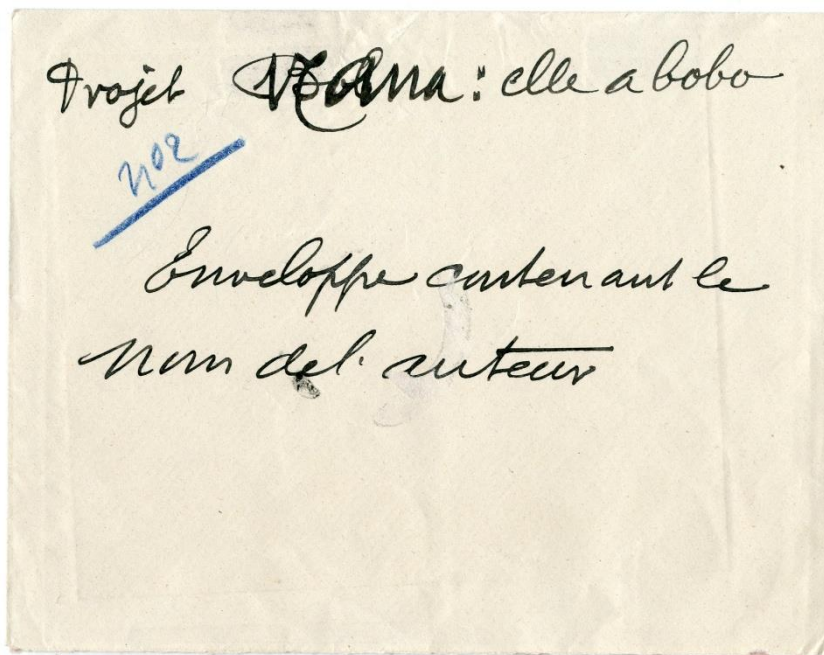 Projet : elle a bobo
402
Enveloppe contenant le
nom de l'auteur